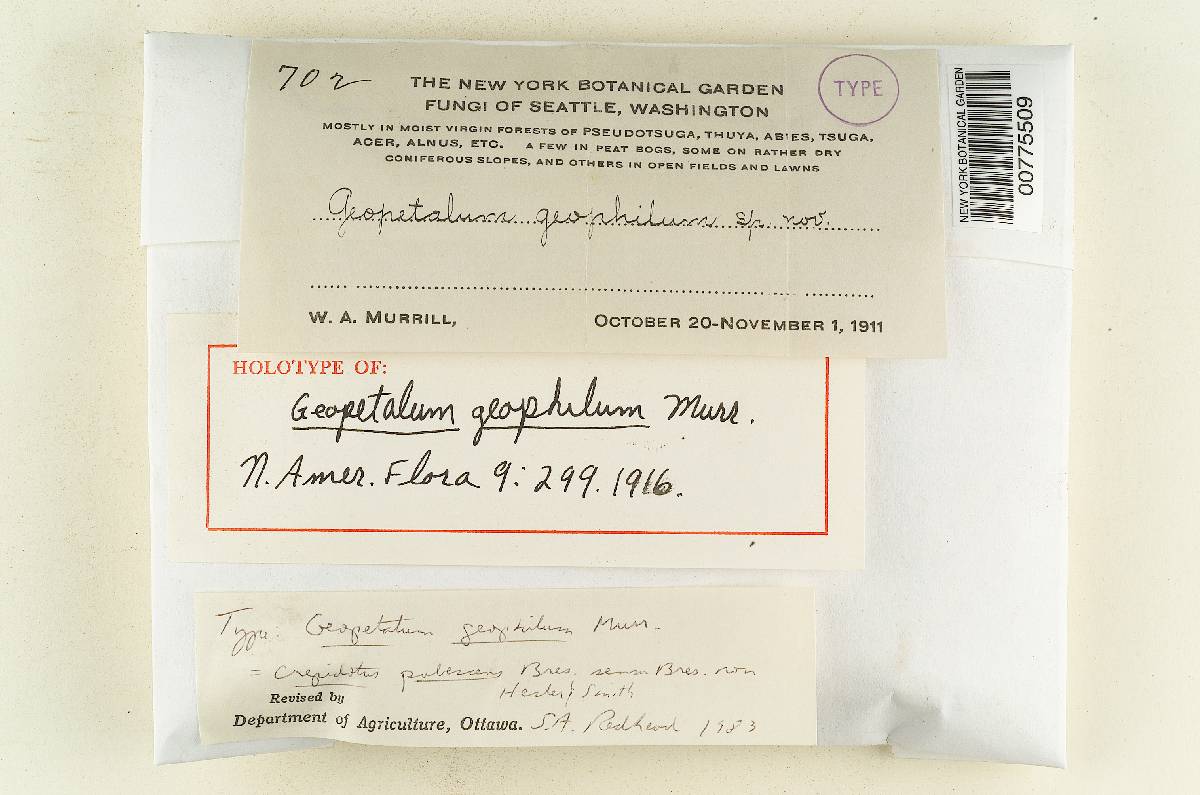 702
THE NEW YORK BOTANICAL GARDEN
TYPE
FUNGI OF SEATTLE, WASHINGTON
MOSTLY IN MOIST VIRGIN FORESTS OF PSEUDOTSUGA, THUYA, ABIES, TSUGA,
ACER, ALNUS, ETC. A FEW IN PEAT BOGS, SOME ON RATHER DRY
CONIFEROUS SLOPES, AND OTHERS IN OPEN FIELDS AND LAWNS
Geopetalum geophilum sp. nov.
W. A. MURRILL, OCTOBER 20-NOVEMBER 1, 1911
NEW YORK BOTANICAL GARDEN
00775509
HOLOTYPE OF:
Geopetalum geophilum Murr.
N. Amer. Flora 9: 299. 1916.
Type: Geopetalum geophilum Murr.
= Crepidotus pubescens Bres. sensu Bres. non
Hesler & Smith
Revised by
Department of Agriculture, Ottawa. S.A. Redhead 1983